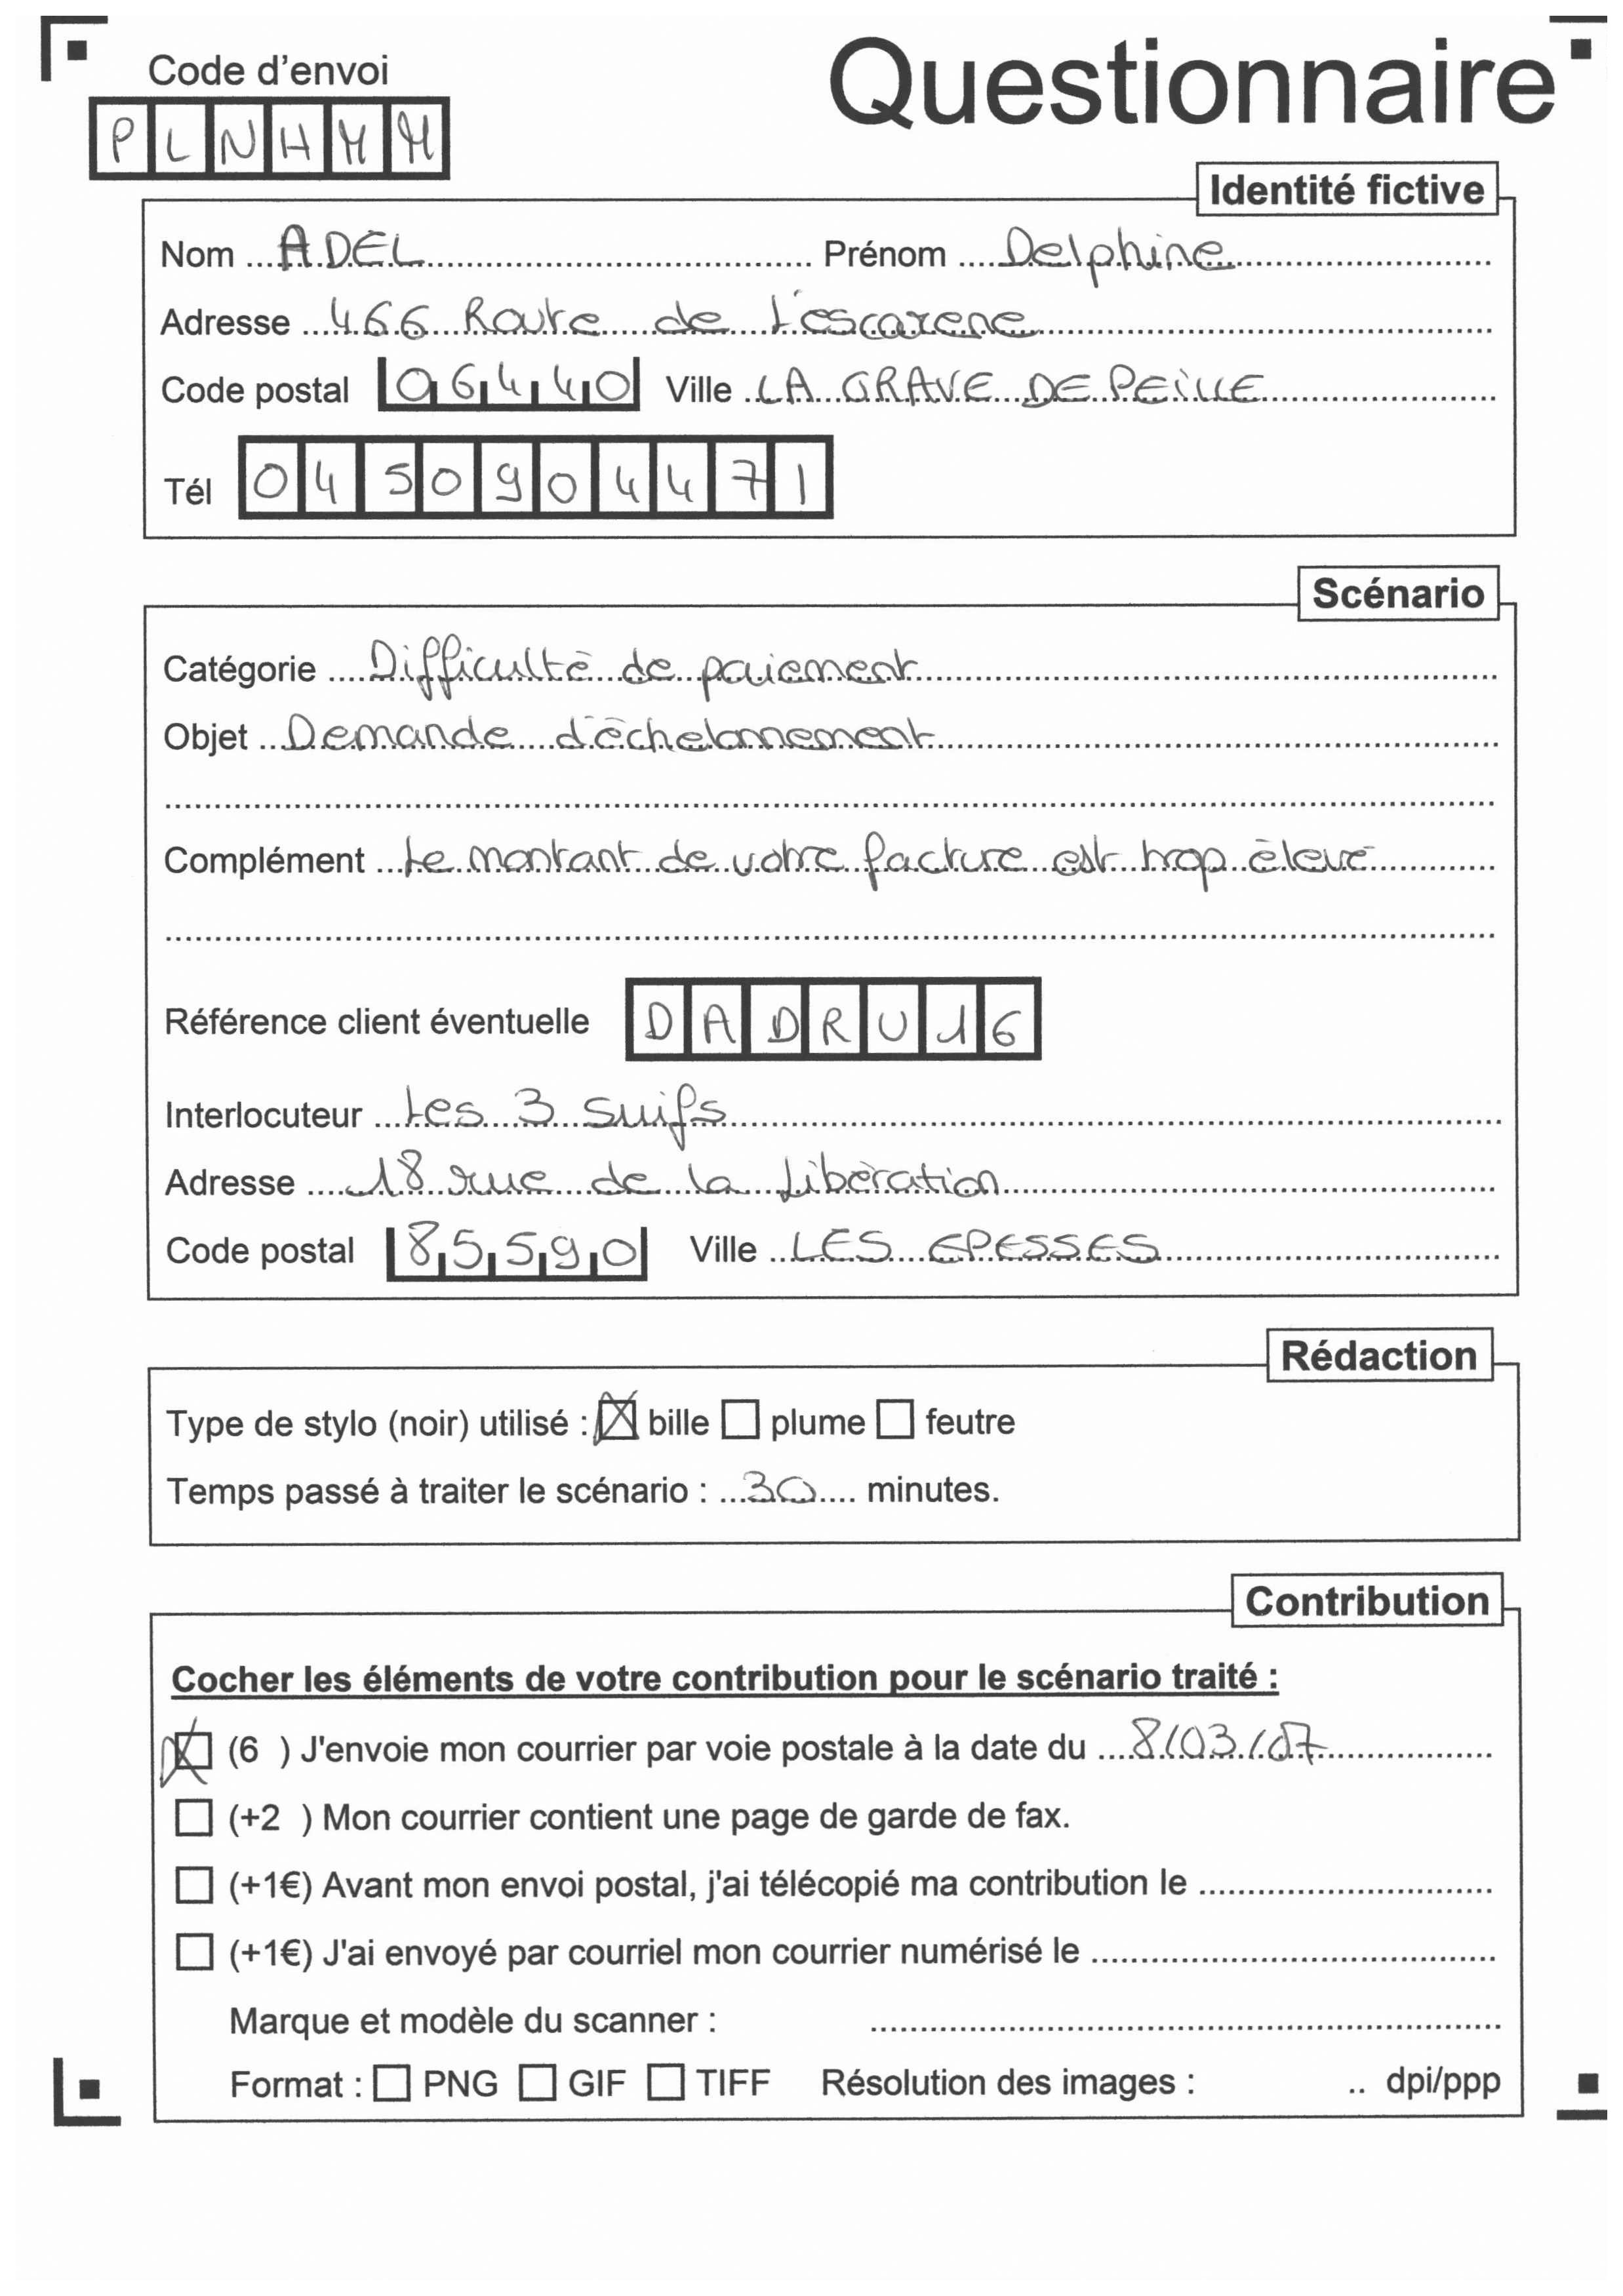 Code d'envoi
Questionnaire
PLNHMM
Identité fictive
Nom ADEL Prénom Delphine
Adresse 466 Route de L'escarene
Code postal 06440 Ville LA GRAVE DE PEILLE
Tél 0450904471
Scénario
Catégorie Difficulté de paiement
Objet Demande d'échelonnement
Complément Le montant de votre facture est trop élevé
Référence client éventuelle DADRU16
Interlocuteur Les 3 suifs
Adresse 18 rue de la Libération
Code postal 85590 Ville LES EPESSES
Rédaction
Type de stylo (noir) utilisé : bille plume feutre
Temps passé à traiter le scénario : 30 minutes.
Contribution
Cocher les éléments de votre contribution pour le scénario traité :
(6 ) J'envoie mon courrier par voie postale à la date du 8/03/07
(+2 ) Mon courrier contient une page de garde de fax.
(+1€) Avant mon envoi postal, j'ai télécopié ma contribution le
(+1€) J'ai envoyé par courriel mon courrier numérisé le
Marque et modèle du scanner :
Format : PNG GIF TIFF Résolution des images : .. dpi/ppp